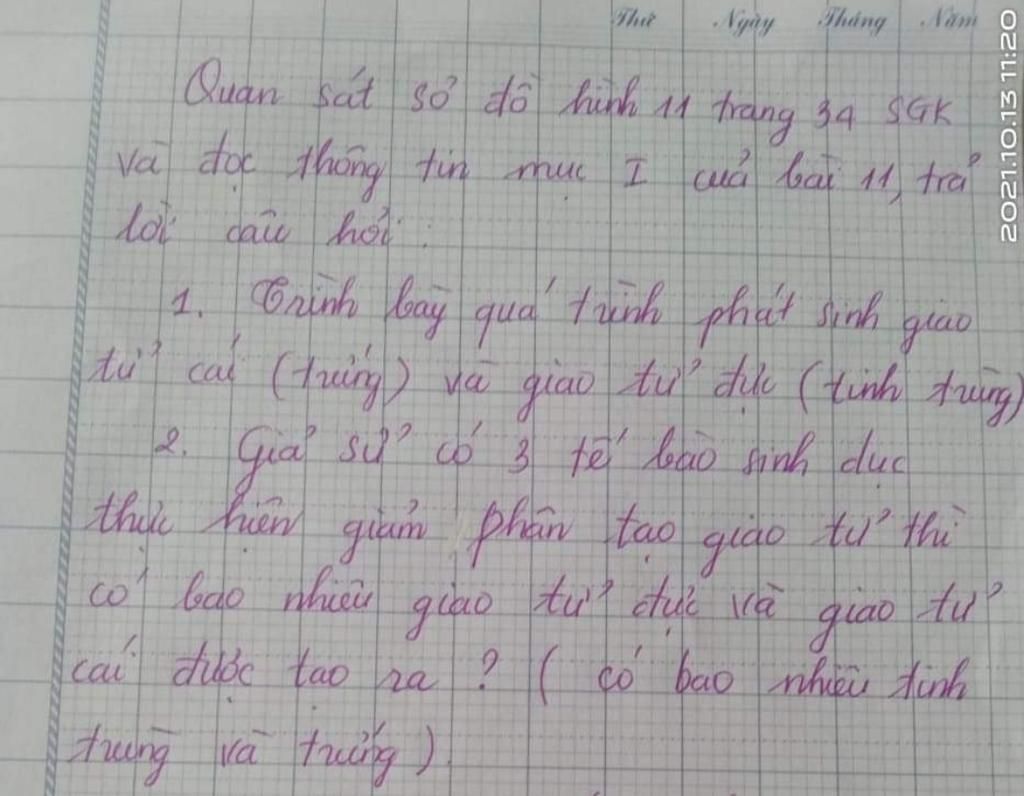 Thứ Ngày Tháng Năm
Quan sát sơ đồ hình 11 trang 34 SGK
và đọc thông tin mục I của bài 11, trả
lời câu hỏi:
1. Trình bày quá trình phát sinh giao
tử cái (trứng) và giao tử đực (tinh trùng)
2. Giả sử có 3 tế bào sinh dục
thực hiện giảm phân tạo giao tử thì
có bao nhiêu giao tử đực và giao tử
cái được tạo ra? (có bao nhiêu tinh
trùng và trứng).
2021.10.13 11:20